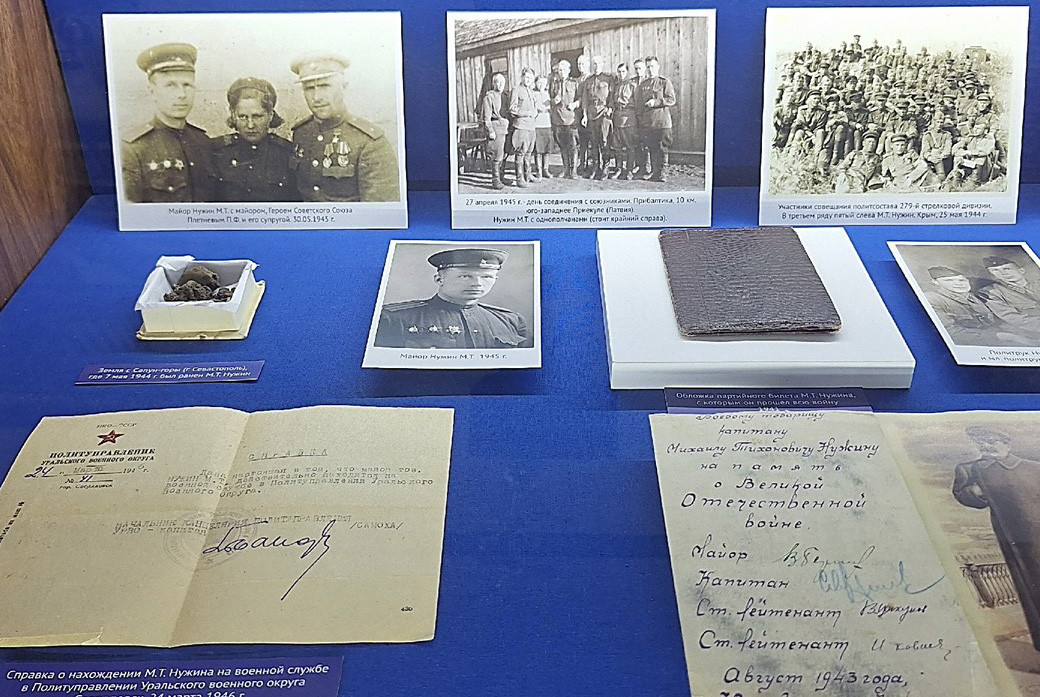 Майор Нужин М.Т. с майором, Героем Советского Союза
Плетневым П.Ф. и его супругой. 30.05.1945 г.
27 апреля 1945 г.- день соединения с союзниками. Прибалтика, 10 км.
юго-западнее Приекуле (Латвия).
Нужин М.Т. с однополчанами (стоит крайний справа).
Участники совещания политсостава 279-й стрелковой дивизии.
В третьем ряду пятый слева М.Т. Нужин. Крым, 25 мая 1944 г.
Земля с Сапун-горы (г Севастополь),
где 7 мая 1944 г. был ранен М.Т. Нужин
Майор Нужин М.Т. 1945 г.
Обложка партийного билета М.Т. Нужина,
с которым он прошел всю войну
Политрук
и мл. политру
НКО-СССР
ПОЛИТУПРАВЛЕНИЕ
УРАЛЬСКОГО ВОЕННОГО ОКРУГА
24 марта 194 г.
гор. Свердловск
СПРАВКА
Дана настоящая в том, что майор тов.
НУЖИН М.Т. действительно находится на
военной службе в Политуправлении Уральского
Военного Округа.
НАЧАЛЬНИК КАНЦЕЛЯРИИ ПОЛИТУПРАВЛЕНИЯ
УРВО - капитан /САМОХА/
Справка о нахождении М.Т. Нужина на военной службе
в Политуправлении Уральского военного округа
24 марта 1946 г.
Боевому товарищу
капитану
Михаилу Тихоновичу Нужину
на память
о Великой
Отечественной
войне.
Майор
Капитан
Ст. лейтенант
Ст. лейтенант
Август 1943 года,